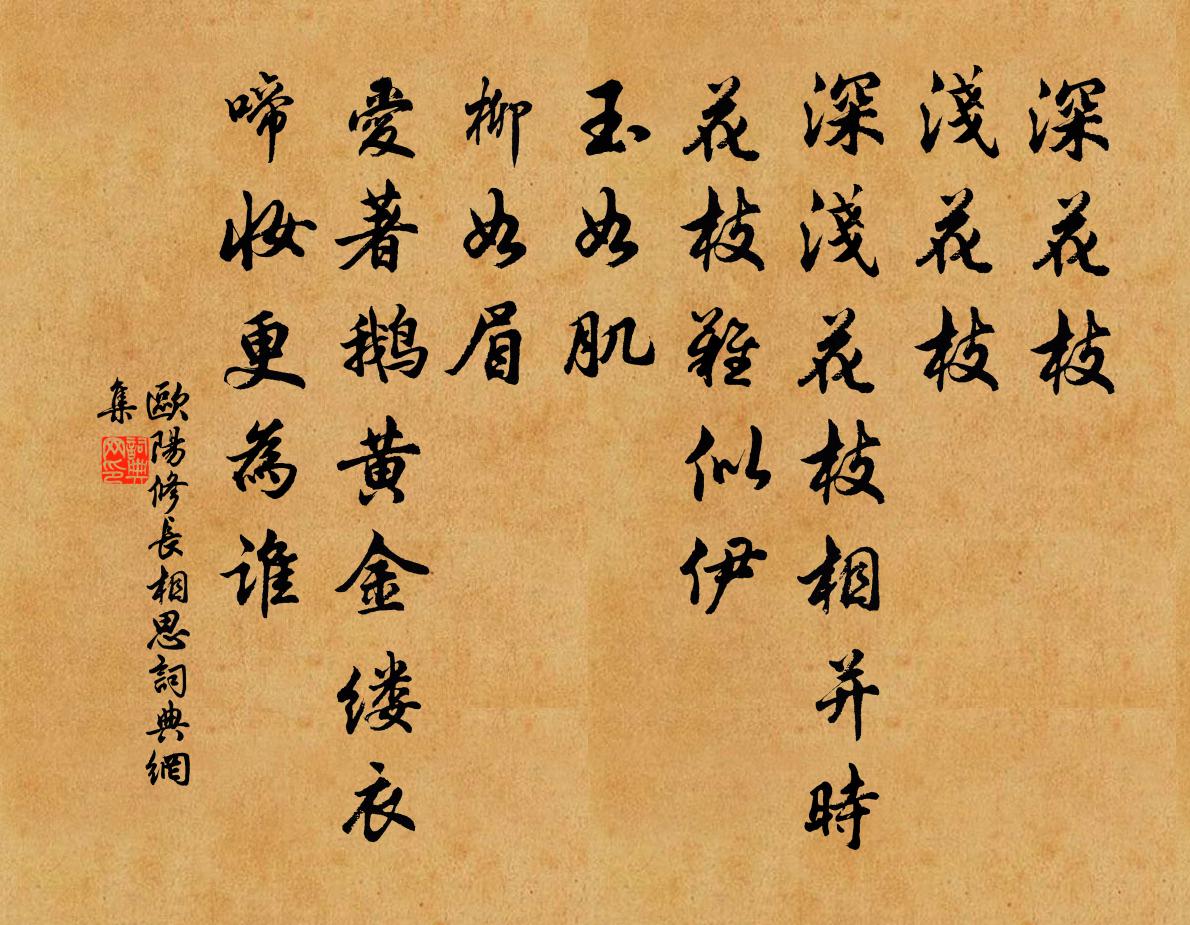 深花枝
淺花枝
深淺花枝相并時
花枝難似伊
玉如肌
柳如眉
愛著鹅黄金缕衣
啼妝更為誰
歐陽修長相思詞典網
集
詞典
网印